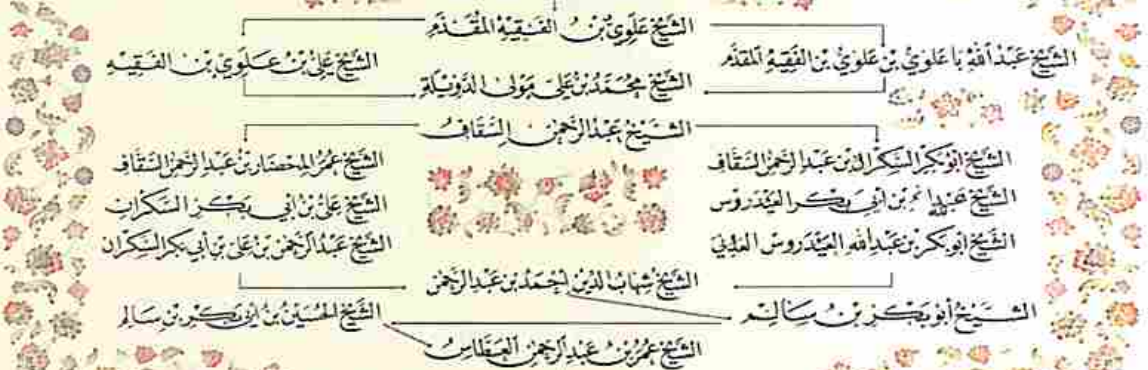 الشَّيْخُ عَلَوِيُّ بْنُ الفَقِيْهِ المُقَدَّمِ
الشَّيْخُ عَبْدُ اللهِ بَاعَلَوِيُّ بْنُ عَلَوِيُّ بْنِ الفَقِيْهِ المُقَدَّمِ
الشَّيْخُ عَلِيُّ بْنُ عَلَوِيِّ بْنِ الفَقِيْهِ
الشَّيْخُ مُحَمَّدُ بْنُ عَلِيّ مَوْلَى الدَّوِيْلَةِ
الشَّيْخُ عَبْدُ الرَّحْمٰنِ السَّقَافُ
الشَّيْخُ أَبُو بَكْرِ السَّكْرَانُ بْنُ عَبْدِ الرَّحْمٰنِ السَّقَافِ
الشَّيْخُ عُمَرُ المِحْضَارُ بْنُ عَبْدِ الرَّحْمٰنِ السَّقَافِ
الشَّيْخُ عَبْدُ اللهِ بْنُ أَبِي بَكْرِ العَيْدَرُوْسُ
الشَّيْخُ عَلِيُّ بْنُ أَبِي بَكْرِ السَّكْرَانِ
الشَّيْخُ أَبُو بَكْرِ بْنُ عَبْدِ اللهِ العَيْدَرُوْسُ العَدَنِيُّ
الشَّيْخُ عَبْدُ الرَّحْمٰنِ بْنُ عَلِيّ بْنِ أَبِي بَكْرِ السَّكْرَانِ
الشَّيْخُ شِهَابُ الدِّيْنِ أَحْمَدُ بْنُ عَبْدِ الرَّحْمٰنِ
الشَّيْخُ أَبُو بَكْرِ بْنُ سَالِمِ
الشَّيْخُ الحُسَيْنُ بْنُ أَبِي بَكْرِ بْنِ سَالِمِ
الشَّيْخُ عُمَرُ بْنُ عَبْدِ الرَّحْمٰنِ العَطَّاسُ